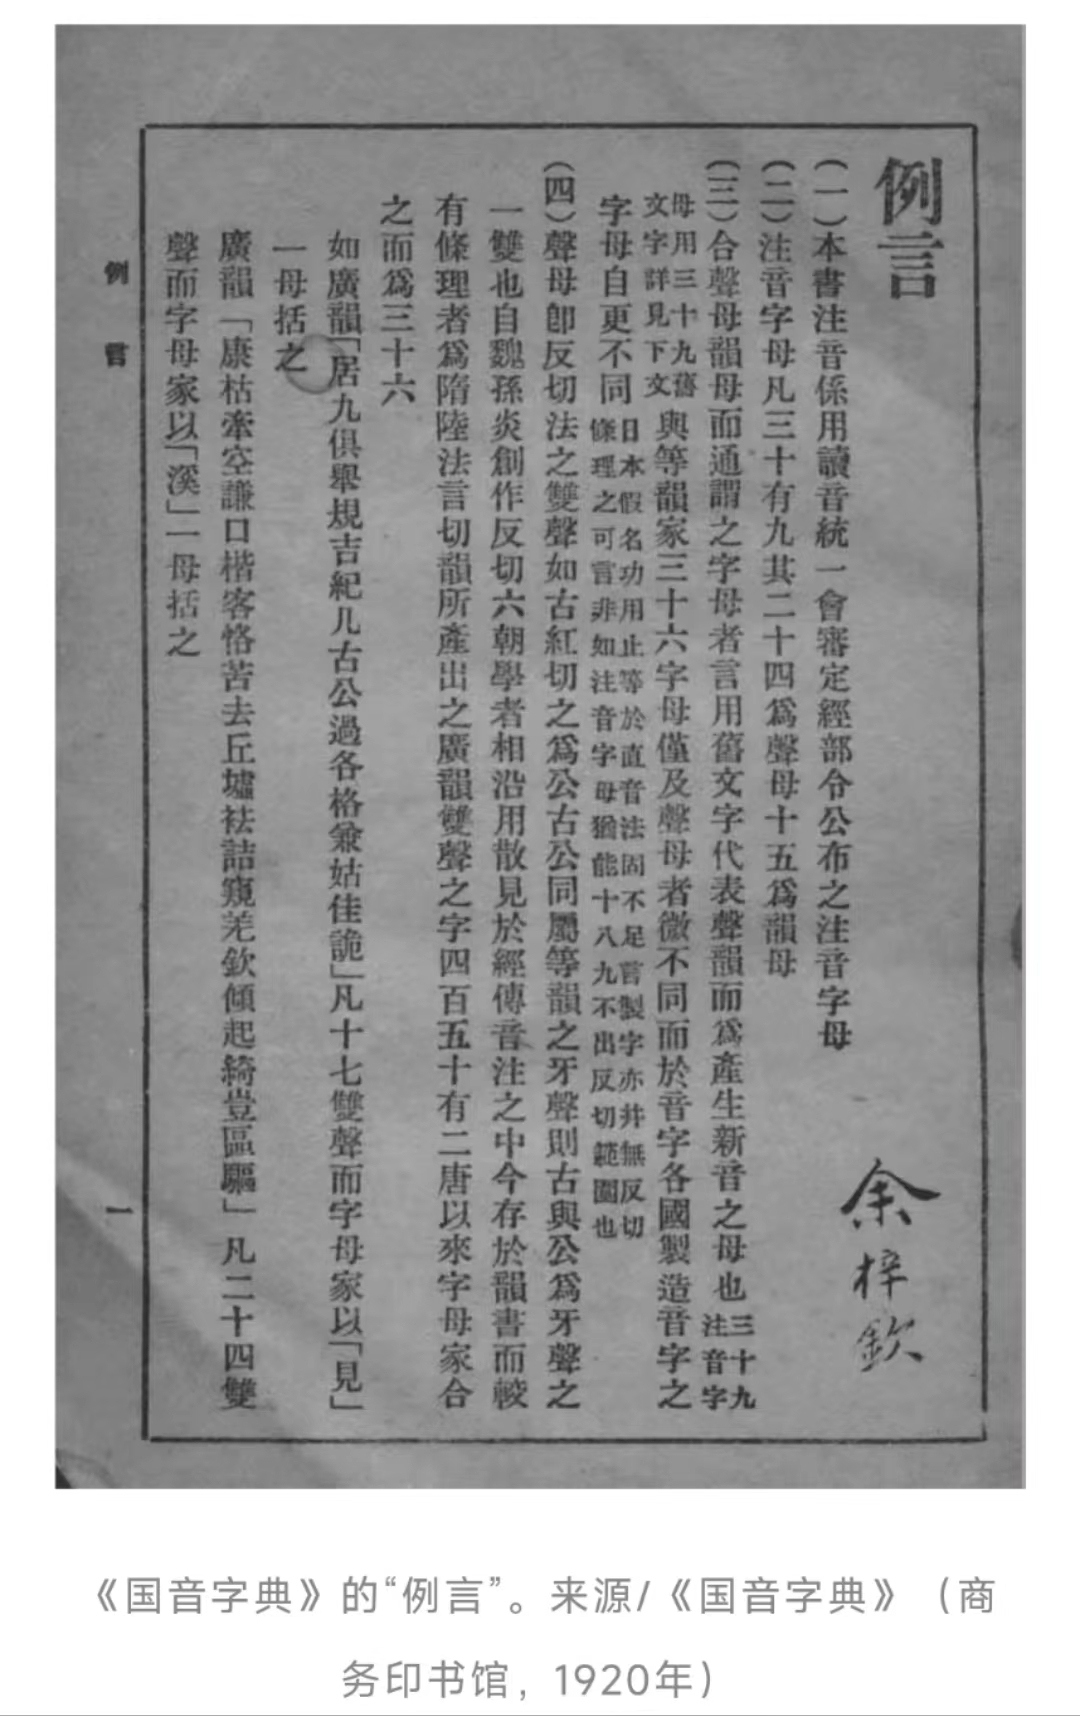 例言
余梓欽
(一)本書注音係用讀音統一會審定經部令公布之注音字母
(二)注音字母凡三十有九其二十四爲聲母十五爲韻母
(三)合聲母韻母而通謂之字母者言用舊文字代表聲韻而爲產生新音之母也三十九注音字
母用三十九舊文字詳見下文與等韻家三十六字母僅及聲母者微不同而於音字各國製造音字之
字母自更不同日本假名功用止等於直音法固不足言製字亦并無反切條理之可言非如注音字母猶能十八九不出反切範圍也
(四)聲母卽反切法之雙聲如古紅切之爲公古公同屬等韻之牙聲則古與公爲牙聲之
一雙也自魏孫炎創作反切六朝學者相沿用散見於經傳音注之中今存於韻書而較
有條理者爲隋陸法言切韻所產出之廣韻雙聲之字四百五十有二唐以來字母家合
之而爲三十六
如廣韻「居九俱舉規吉紀几古公過各格兼姑佳詭」凡十七雙聲而字母家以「見」
一母括之
廣韻「康枯牽空謙口楷客恪苦去丘墟袪詰窺羌欽傾起綺豈區驅」凡二十四雙
聲而字母家以「溪」一母括之
例言
一
《国音字典》的“例言”。来源/《国音字典》（商
务印书馆，1920年）